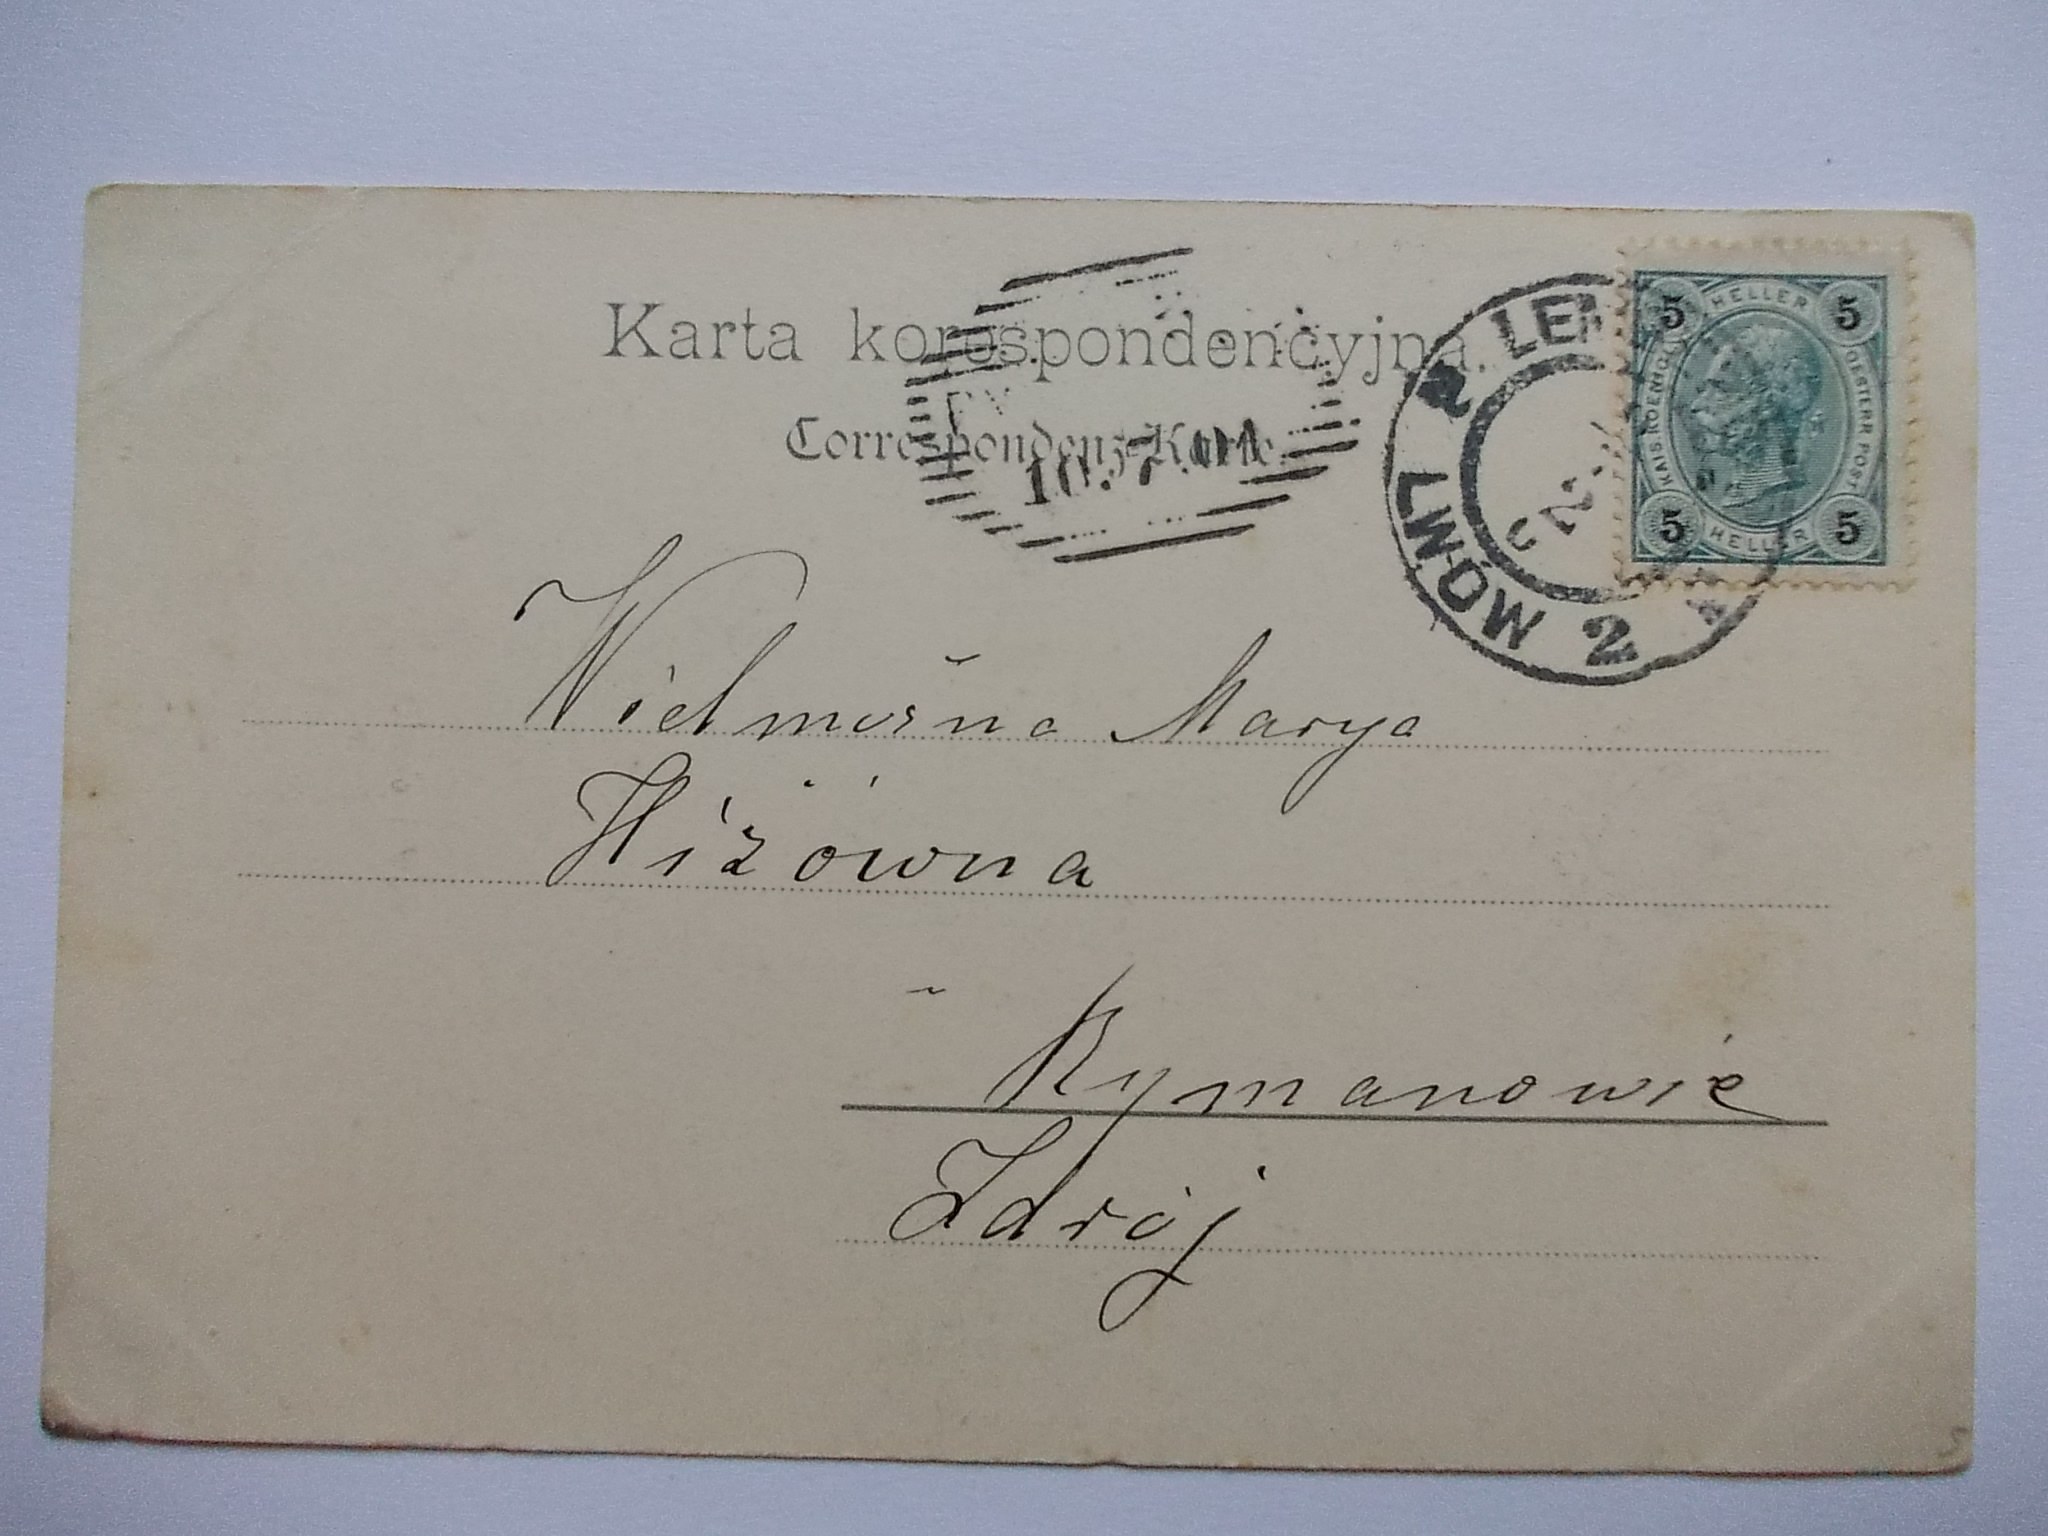 Karta korespondencyjna.
Correspondenz-Karte.
10.7.01
LEM
LWÓW 2
a
5 HELLER 5
KAIS. KOENIGL. OESTERR. POST.
5 HELLER 5
Wielmożna Marya
Hiżówna
w Rymanowie
Zdrój